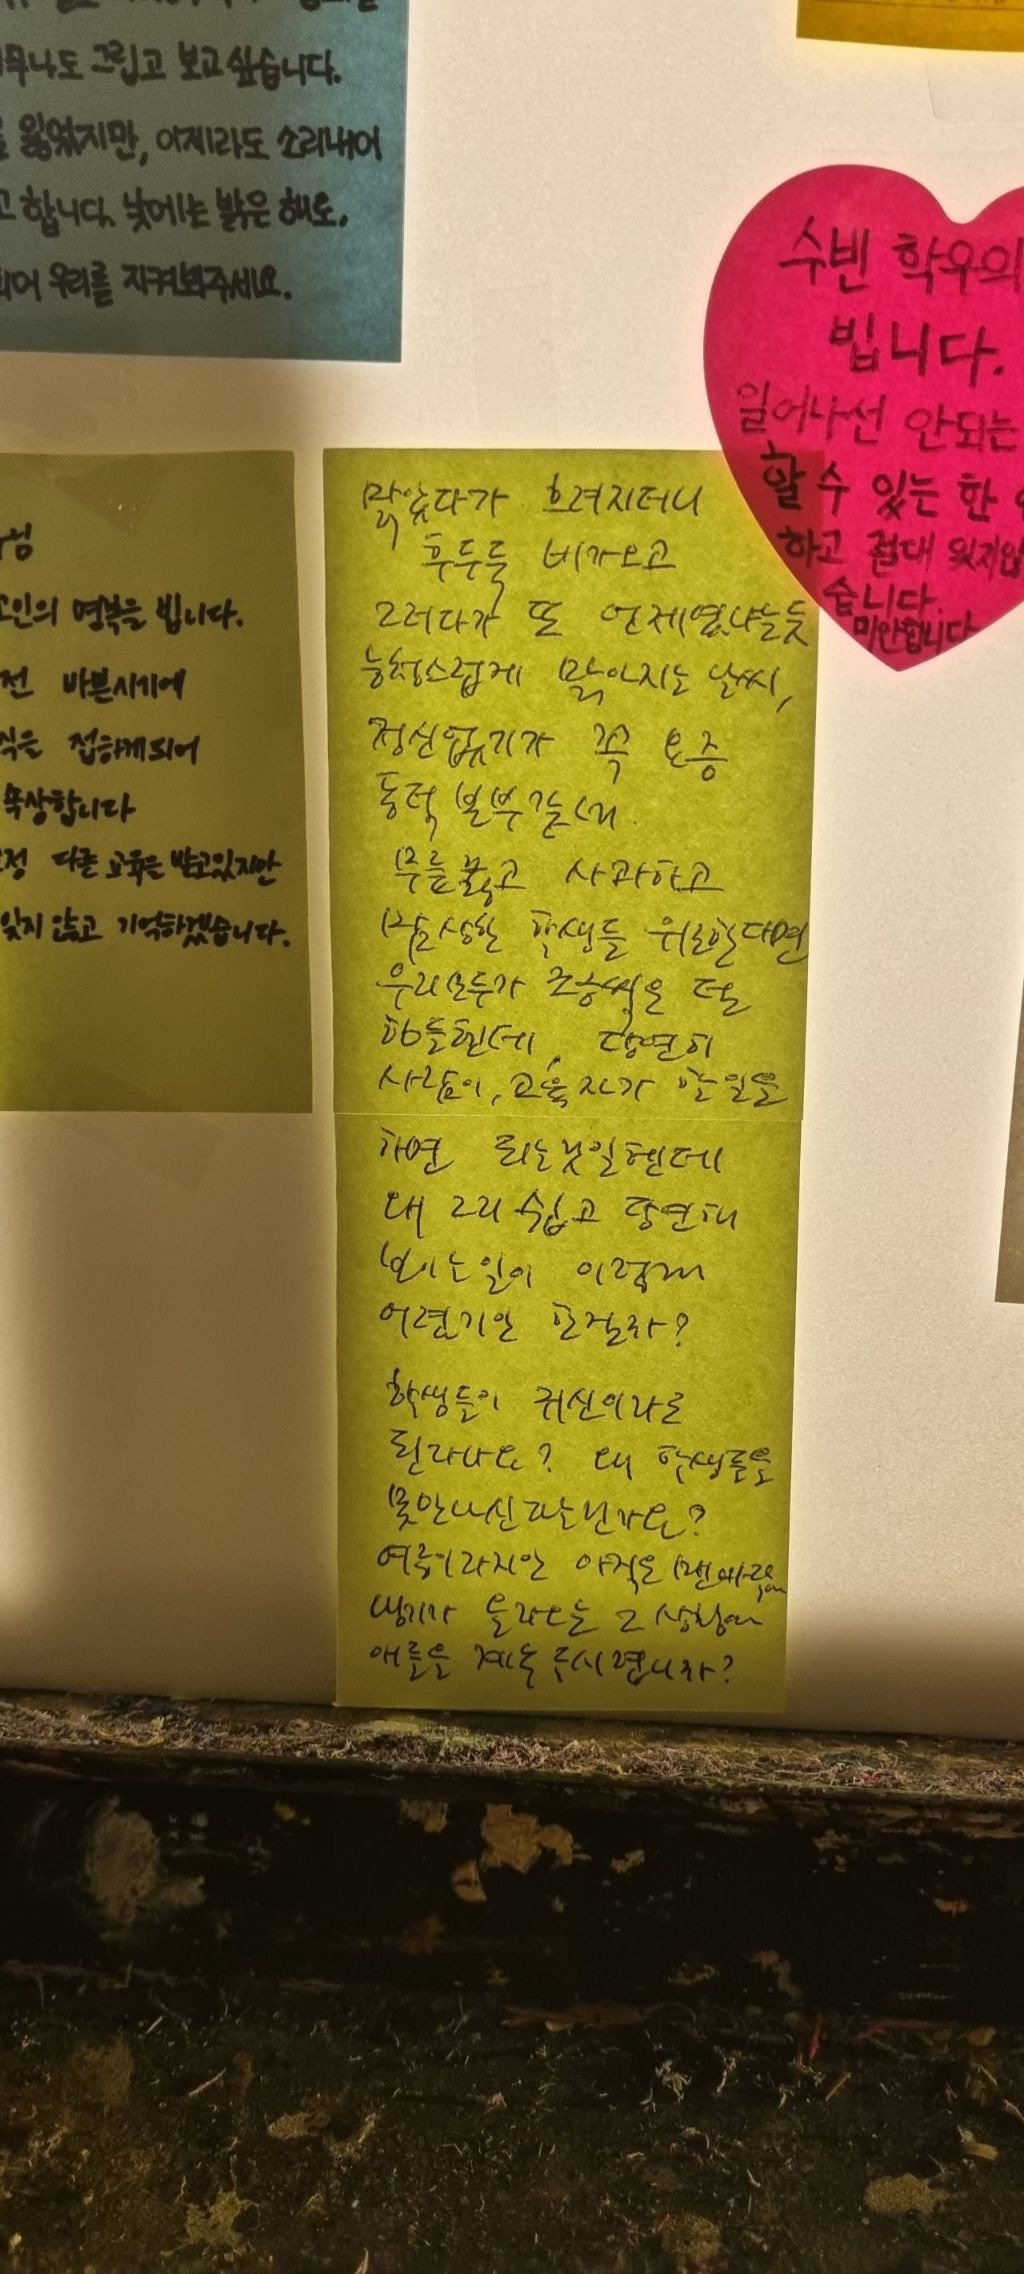 그립고 보고싶습니다.
잃었지만, 이제라도 소리내어
합니다. 낮에는 밝은 해로,
되어 우리를 지켜봐주세요.
수빈 학우의
빕니다.
일어나선 안되는
할 수 있는 한
하고 절대 잊지않
습니다.
미안합니다
고인의 명복을 빕니다.
전 바쁜시기에
접하게되어
속상합니다
다른 교육을 받고있지만
잊지 않고 기억하겠습니다.
맑았다가 흐려지더니
후두둑 비가오고
그러다가 또 언제였냐는듯
능청스럽게 맑아지는 날씨,
정신없기가 꼭 요즘
동덕 본부같네.
무릎꿇고 사과하고
학생들 위로한다면
우리모두가 조금씩은 덜
힘들텐데, 당연히
사람이, 교육자가 할일을
하면 되는것일텐데
왜 그리 쉽고 당연해
보이는일이 이렇게
어렵기만 한걸까?
학생들이 귀신이라도
된다나요? 왜 학생들을
못만나신다는건가요?
여름이라지만 아직은 맨바닥에
냉기가 올라오는 그 상황에
애들을 계속 두시렵니까?